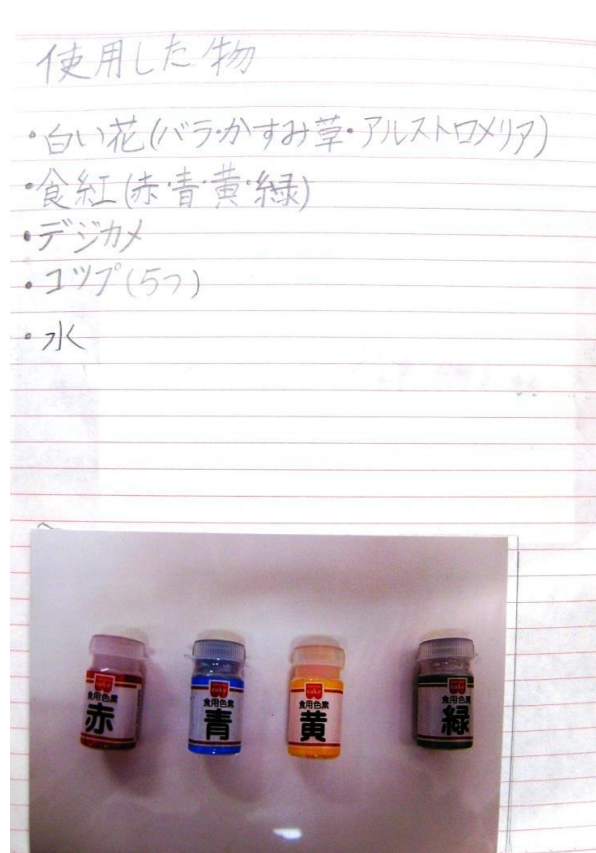 使用した物
・白い花(バラ・かすみ草・アルストロメリア)
・食紅(赤・青・黄・緑)
・デジカメ
・コップ(5つ)
・水
食用色素
赤
食用色素
青
食用色素
黄
食用色素
緑